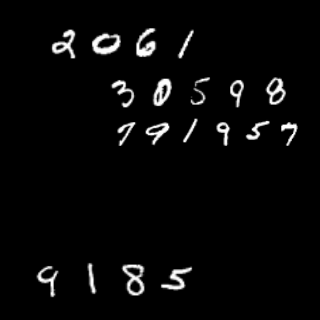 2061
30598
791957
9185